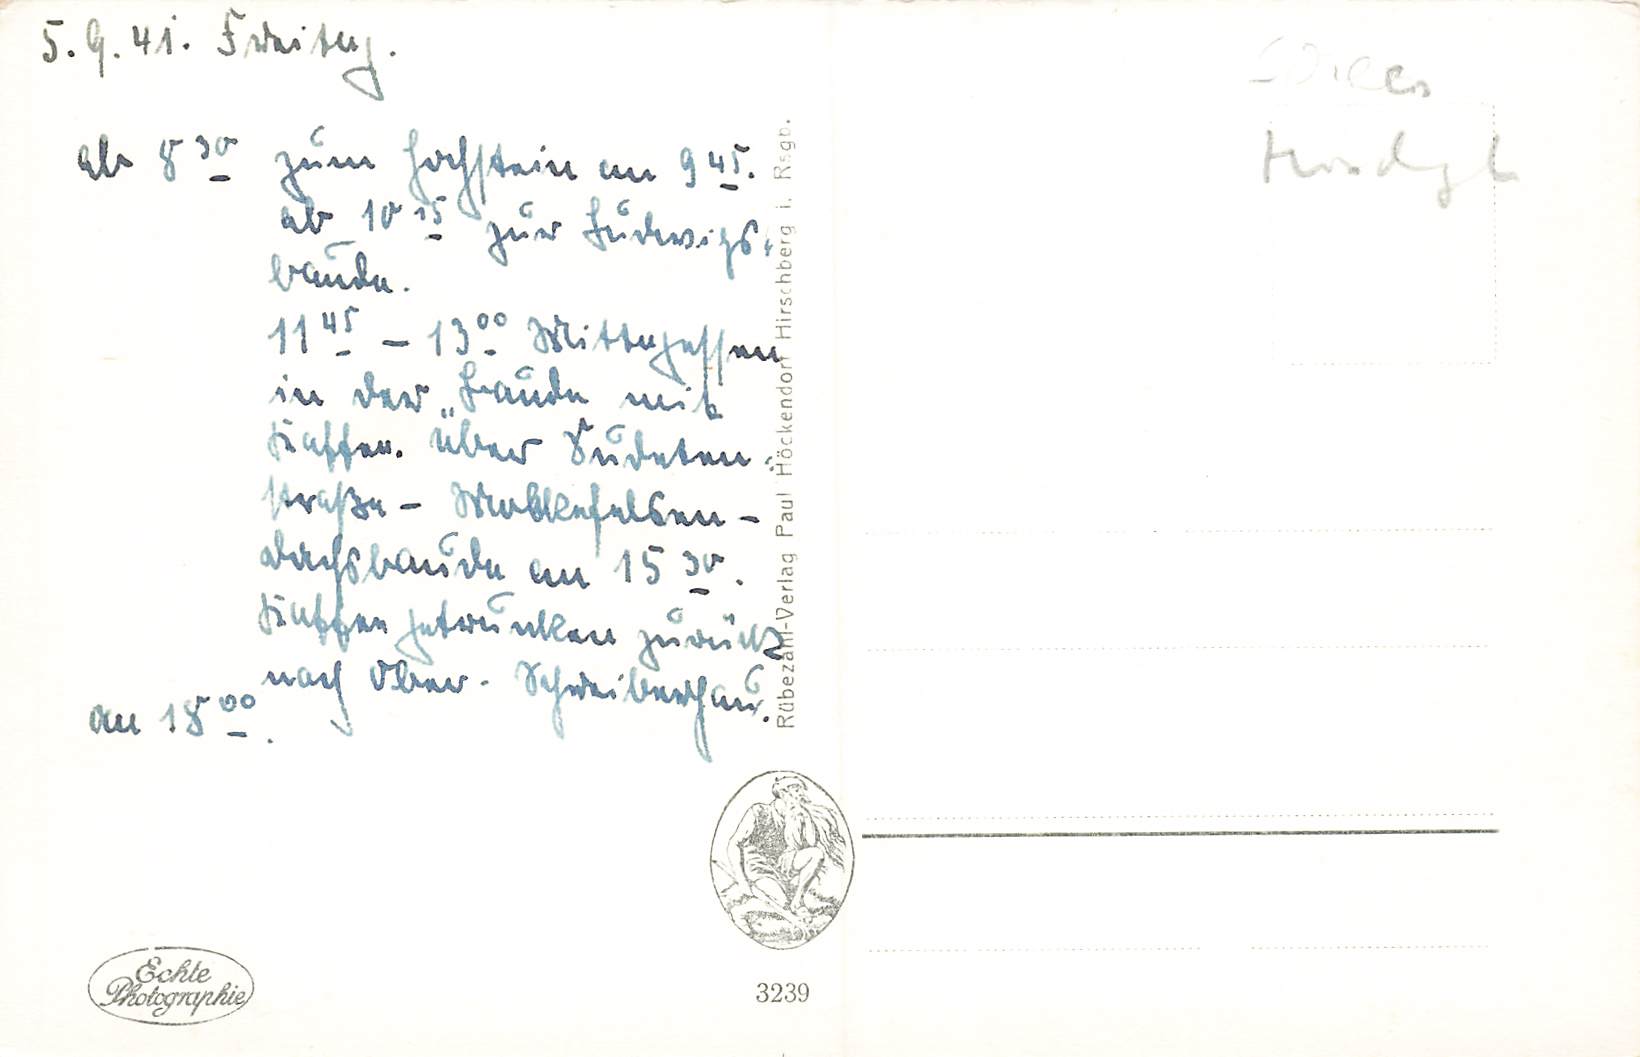 5.9.41. Freitag.
ab 8 30 zum Hochstein an 9 45.
ab 10 15 zur Ludwigs-
baude.
11 45 – 13 00 Mittagessen
in der „Baude mit
Kaffee. Über Sudeten-
straße – Wolfsen –
dachsbaude an 15 30.
Kaffee getrunken zurück
nach Ober-Schreiberhau.
an 18 00.
Rübezahl-Verlag Paul Höckendorf Hirschberg i. Rsgb.
Echte
Photographie
3239